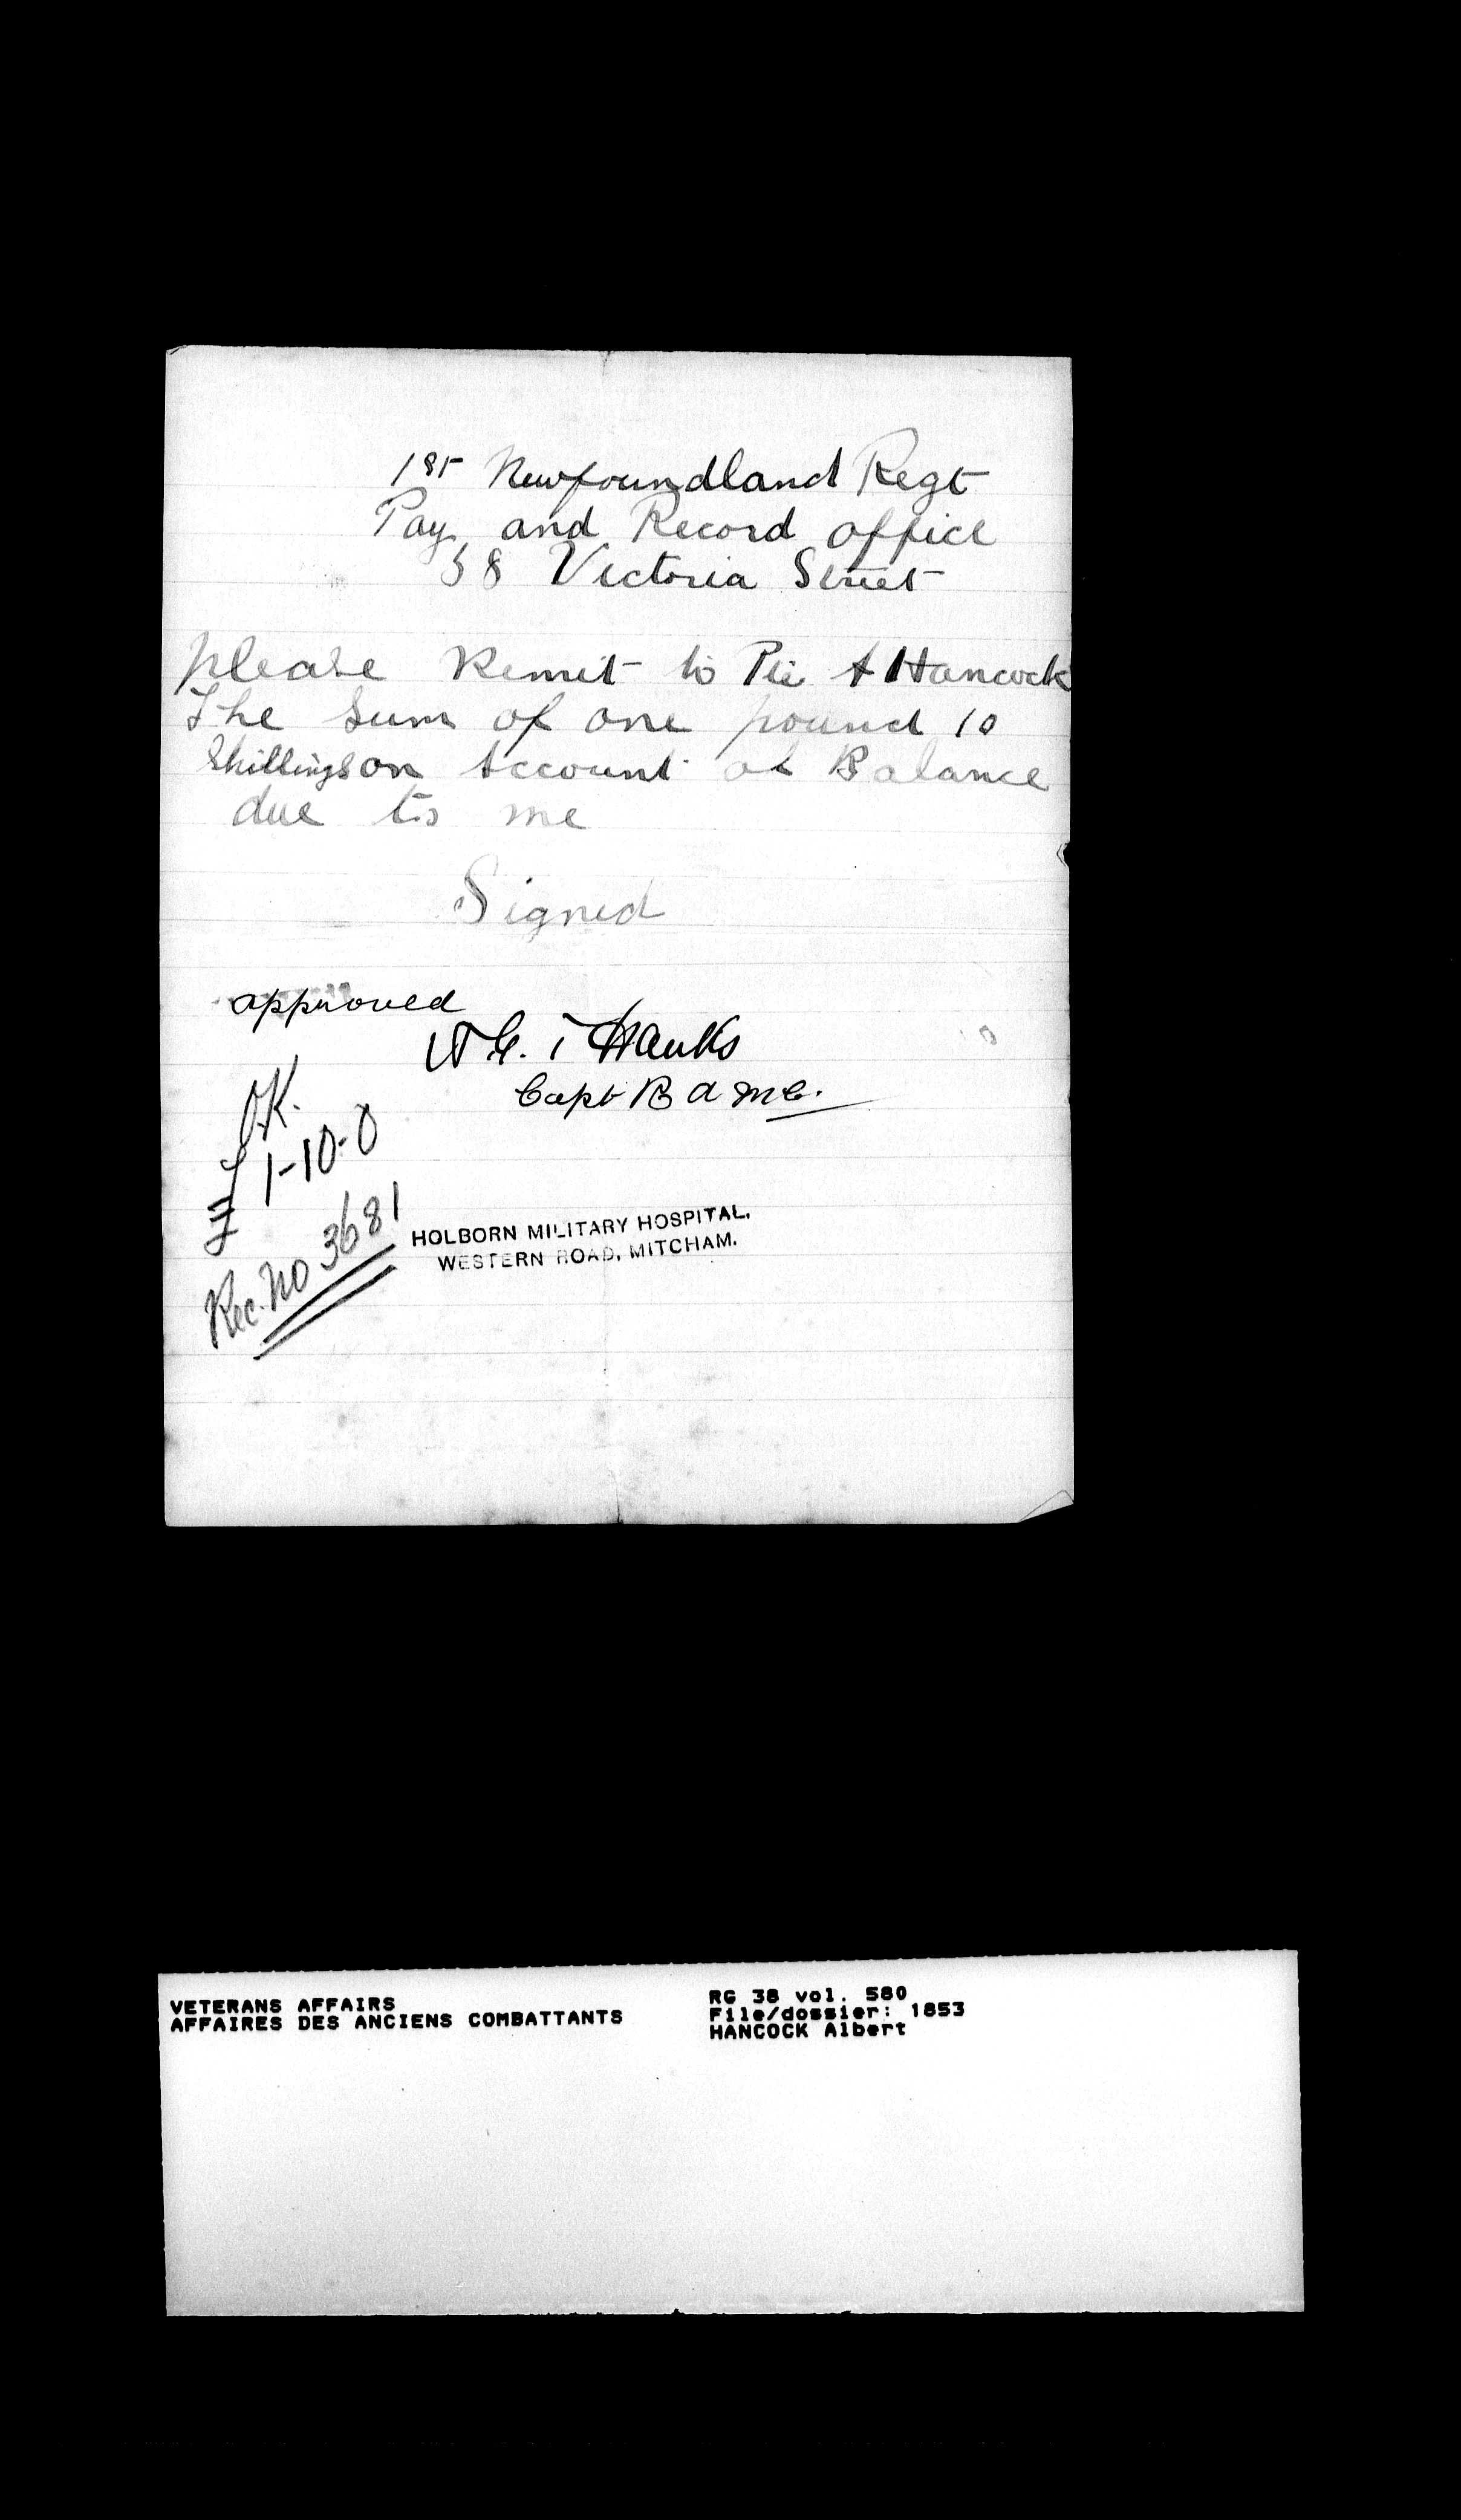 1st Newfoundland Regt
Pay and Record office
58 Victoria Street
please Remit to Pte A Hancock
The Sum of one pound 10
Shillings on Account of Balance
due to me
Signed
approved
Hanks
Capt R A M C.
OK.
£ 1-10-0
Rec. No 3681
HOLBORN MILITARY HOSPITAL,
WESTERN ROAD, MITCHAM.
VETERANS AFFAIRS
AFFAIRES DES ANCIENS COMBATTANTS
RG 38 vol. 580
File/dossier: 1853
HANCOCK Albert